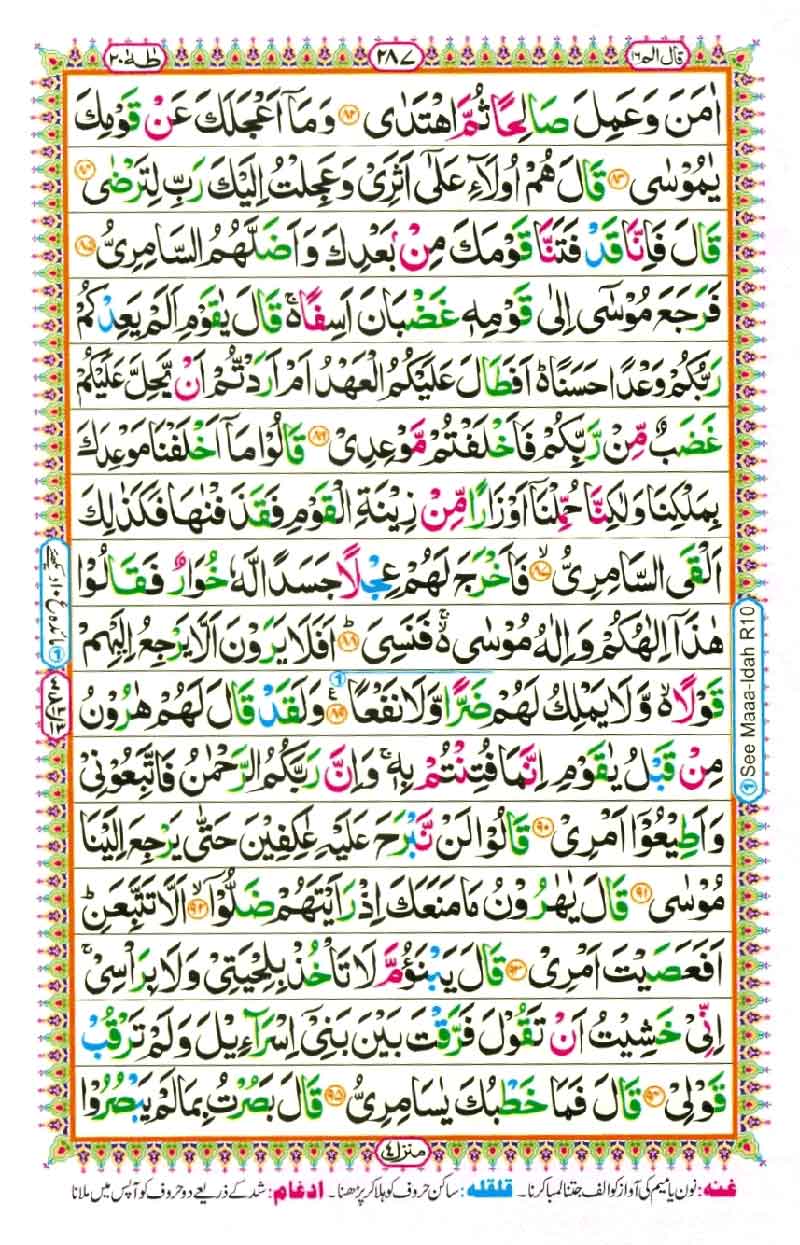 قال الم ١٦
٢٨٧
طٰهٰ ٢٠
اٰمَنَ وَعَمِلَ صَالِحًا ثُمَّ اهْتَدٰى ﴿۸۲﴾ وَمَآ اَعْجَلَكَ عَنْ قَوْمِكَ
يٰمُوْسٰى ﴿۸۳﴾ قَالَ هُمْ اُولَآءِ عَلٰٓى اَثَرِىْ وَعَجِلْتُ اِلَيْكَ رَبِّ لِتَرْضٰى ﴿۸۴﴾
قَالَ فَاِنَّا قَدْ فَتَنَّا قَوْمَكَ مِنْۢ بَعْدِكَ وَاَضَلَّهُمُ السَّامِرِىُّ ﴿۸۵﴾
فَرَجَعَ مُوْسٰٓى اِلٰى قَوْمِهٖ غَضْبَانَ اَسِفًا ۚ قَالَ يٰقَوْمِ اَلَمْ يَعِدْكُمْ
رَبُّكُمْ وَعْدًا حَسَنًا ؕ اَفَطَالَ عَلَيْكُمُ الْعَهْدُ اَمْ اَرَدْتُّمْ اَنْ يَّحِلَّ عَلَيْكُمْ
غَضَبٌ مِّنْ رَّبِّكُمْ فَاَخْلَفْتُمْ مَّوْعِدِىْ ﴿۸۶﴾ قَالُوْا مَآ اَخْلَفْنَا مَوْعِدَكَ
بِمَلْكِنَا وَلٰكِنَّا حُمِّلْنَآ اَوْزَارًا مِّنْ زِيْنَةِ الْقَوْمِ فَقَذَفْنٰهَا فَكَذٰلِكَ
اَلْقَى السَّامِرِىُّ ۙ﴿۸۷﴾ فَاَخْرَجَ لَهُمْ عِجْلًا جَسَدًا لَّهٗ خُوَارٌ فَقَالُوْا
هٰذَآ اِلٰهُكُمْ وَاِلٰهُ مُوْسٰى ۬ۚ فَنَسِىَ ؕ﴿۸۸﴾ اَفَلَا يَرَوْنَ اَلَّا يَرْجِعُ اِلَيْهِمْ
قَوْلًا ۙ وَّلَا يَمْلِكُ لَهُمْ ضَرًّا وَّلَا نَفْعًا ﴿۸۹﴾ وَلَقَدْ قَالَ لَهُمْ هٰرُوْنُ
مِنْ قَبْلُ يٰقَوْمِ اِنَّمَا فُتِنْتُمْ بِهٖ ۚ وَاِنَّ رَبَّكُمُ الرَّحْمٰنُ فَاتَّبِعُوْنِىْ
وَاَطِيْعُوْٓا اَمْرِىْ ﴿۹۰﴾ قَالُوْا لَنْ نَّبْرَحَ عَلَيْهِ عٰكِفِيْنَ حَتّٰى يَرْجِعَ اِلَيْنَا
مُوْسٰى ﴿۹۱﴾ قَالَ يٰهٰرُوْنُ مَا مَنَعَكَ اِذْ رَاَيْتَهُمْ ضَلُّوْٓا ۙ﴿۹۲﴾ اَلَّا تَتَّبِعَنِ ؕ
اَفَعَصَيْتَ اَمْرِىْ ﴿۹۳﴾ قَالَ يَبْنَؤُمَّ لَا تَاْخُذْ بِلِحْيَتِىْ وَلَا بِرَاْسِىْ ۚ
اِنِّىْ خَشِيْتُ اَنْ تَقُوْلَ فَرَّقْتَ بَيْنَ بَنِىْٓ اِسْرَآءِيْلَ وَلَمْ تَرْقُبْ
قَوْلِىْ ﴿۹۴﴾ قَالَ فَمَا خَطْبُكَ يٰسَامِرِىُّ ﴿۹۵﴾ قَالَ بَصُرْتُ بِمَا لَمْ يَبْصُرُوْا
See Maaa-Idah R10
منزل ٤
غنه: نون یا میم کی آواز کو الف جتنا لمبا کرنا۔ قلقله: ساکن حروف کو ہلا کر پڑھنا۔ ادغام: شد کے ذریعے دو حروف کو آپس میں ملانا